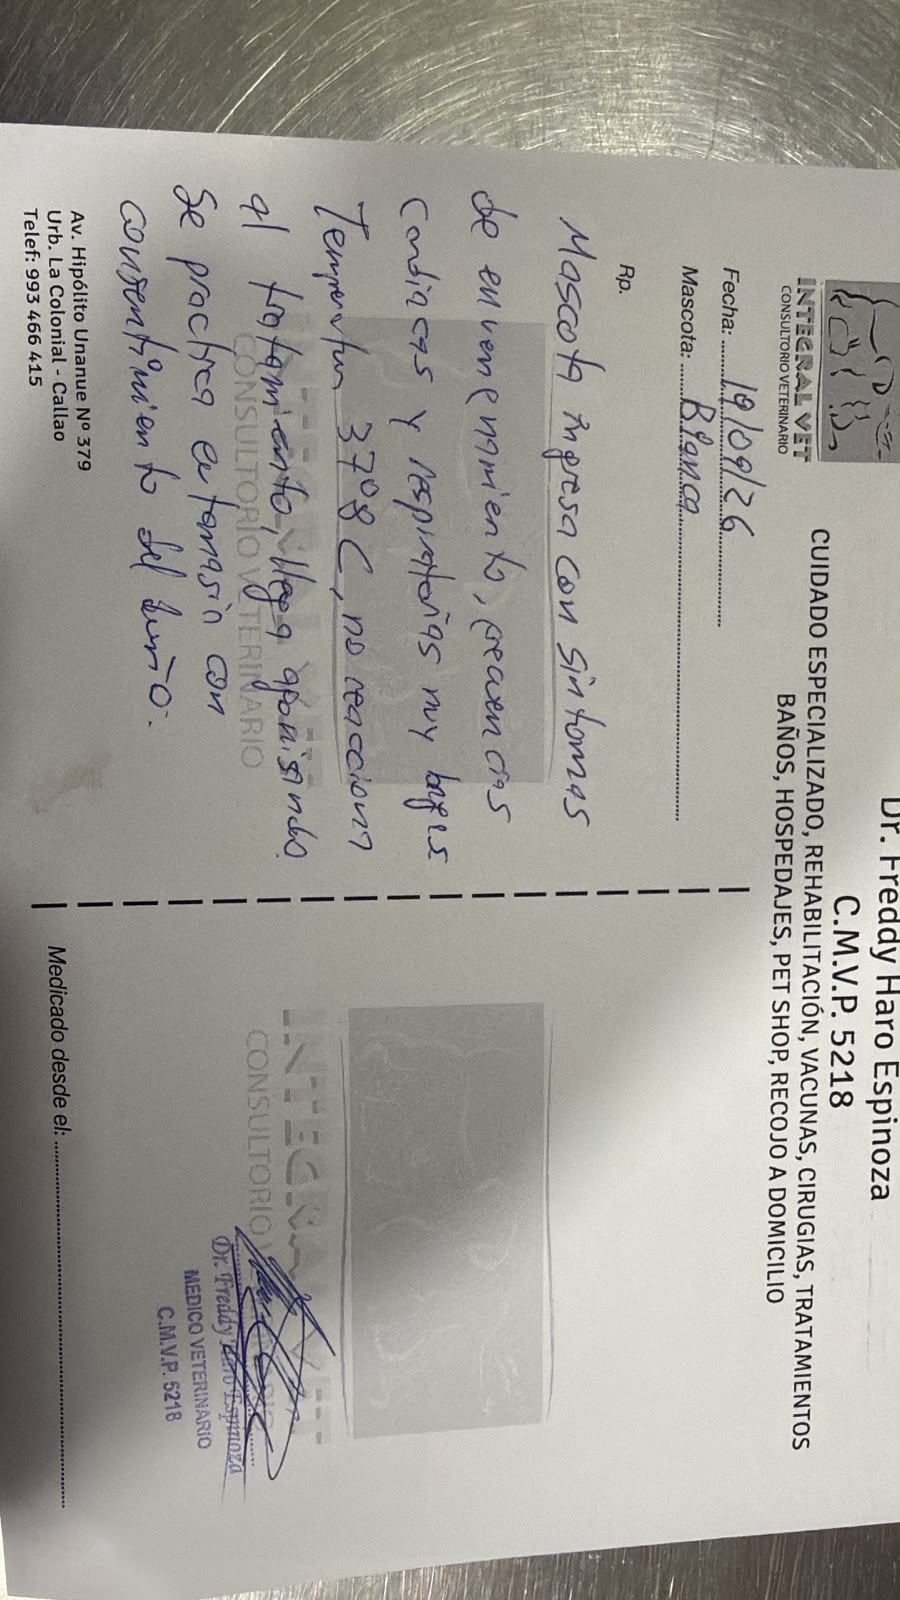 Dr. Freddy Haro Espinoza
C.M.V.P. 5218
CUIDADO ESPECIALIZADO, REHABILITACIÓN, VACUNAS, CIRUGIAS, TRATAMIENTOS
BAÑOS, HOSPEDAJES, PET SHOP, RECOJO A DOMICILIO
INTEGRAL VET
CONSULTORIO VETERINARIO
Fecha: 19/09/26
Mascota: Blanca
Rp.
Mascota ingresa con sintomas
de envenenamiento, frecuencias
cardiacas y respiratorias muy bajas
Temperatura 37°8 C, no reacciona
al tratamiento, llega agonisando.
Se practica eutanasia con
consentimiento del dueño.
Av. Hipólito Unanue Nº 379
Urb. La Colonial - Callao
Telef: 993 466 415
INTEGRAL VET
CONSULTORIO VETERINARIO
INTEGRA
CONSULTORIO
Dr. Freddy Haro Espinoza
MEDICO VETERINARIO
C.M.V.P. 5218
Medicado desde el: